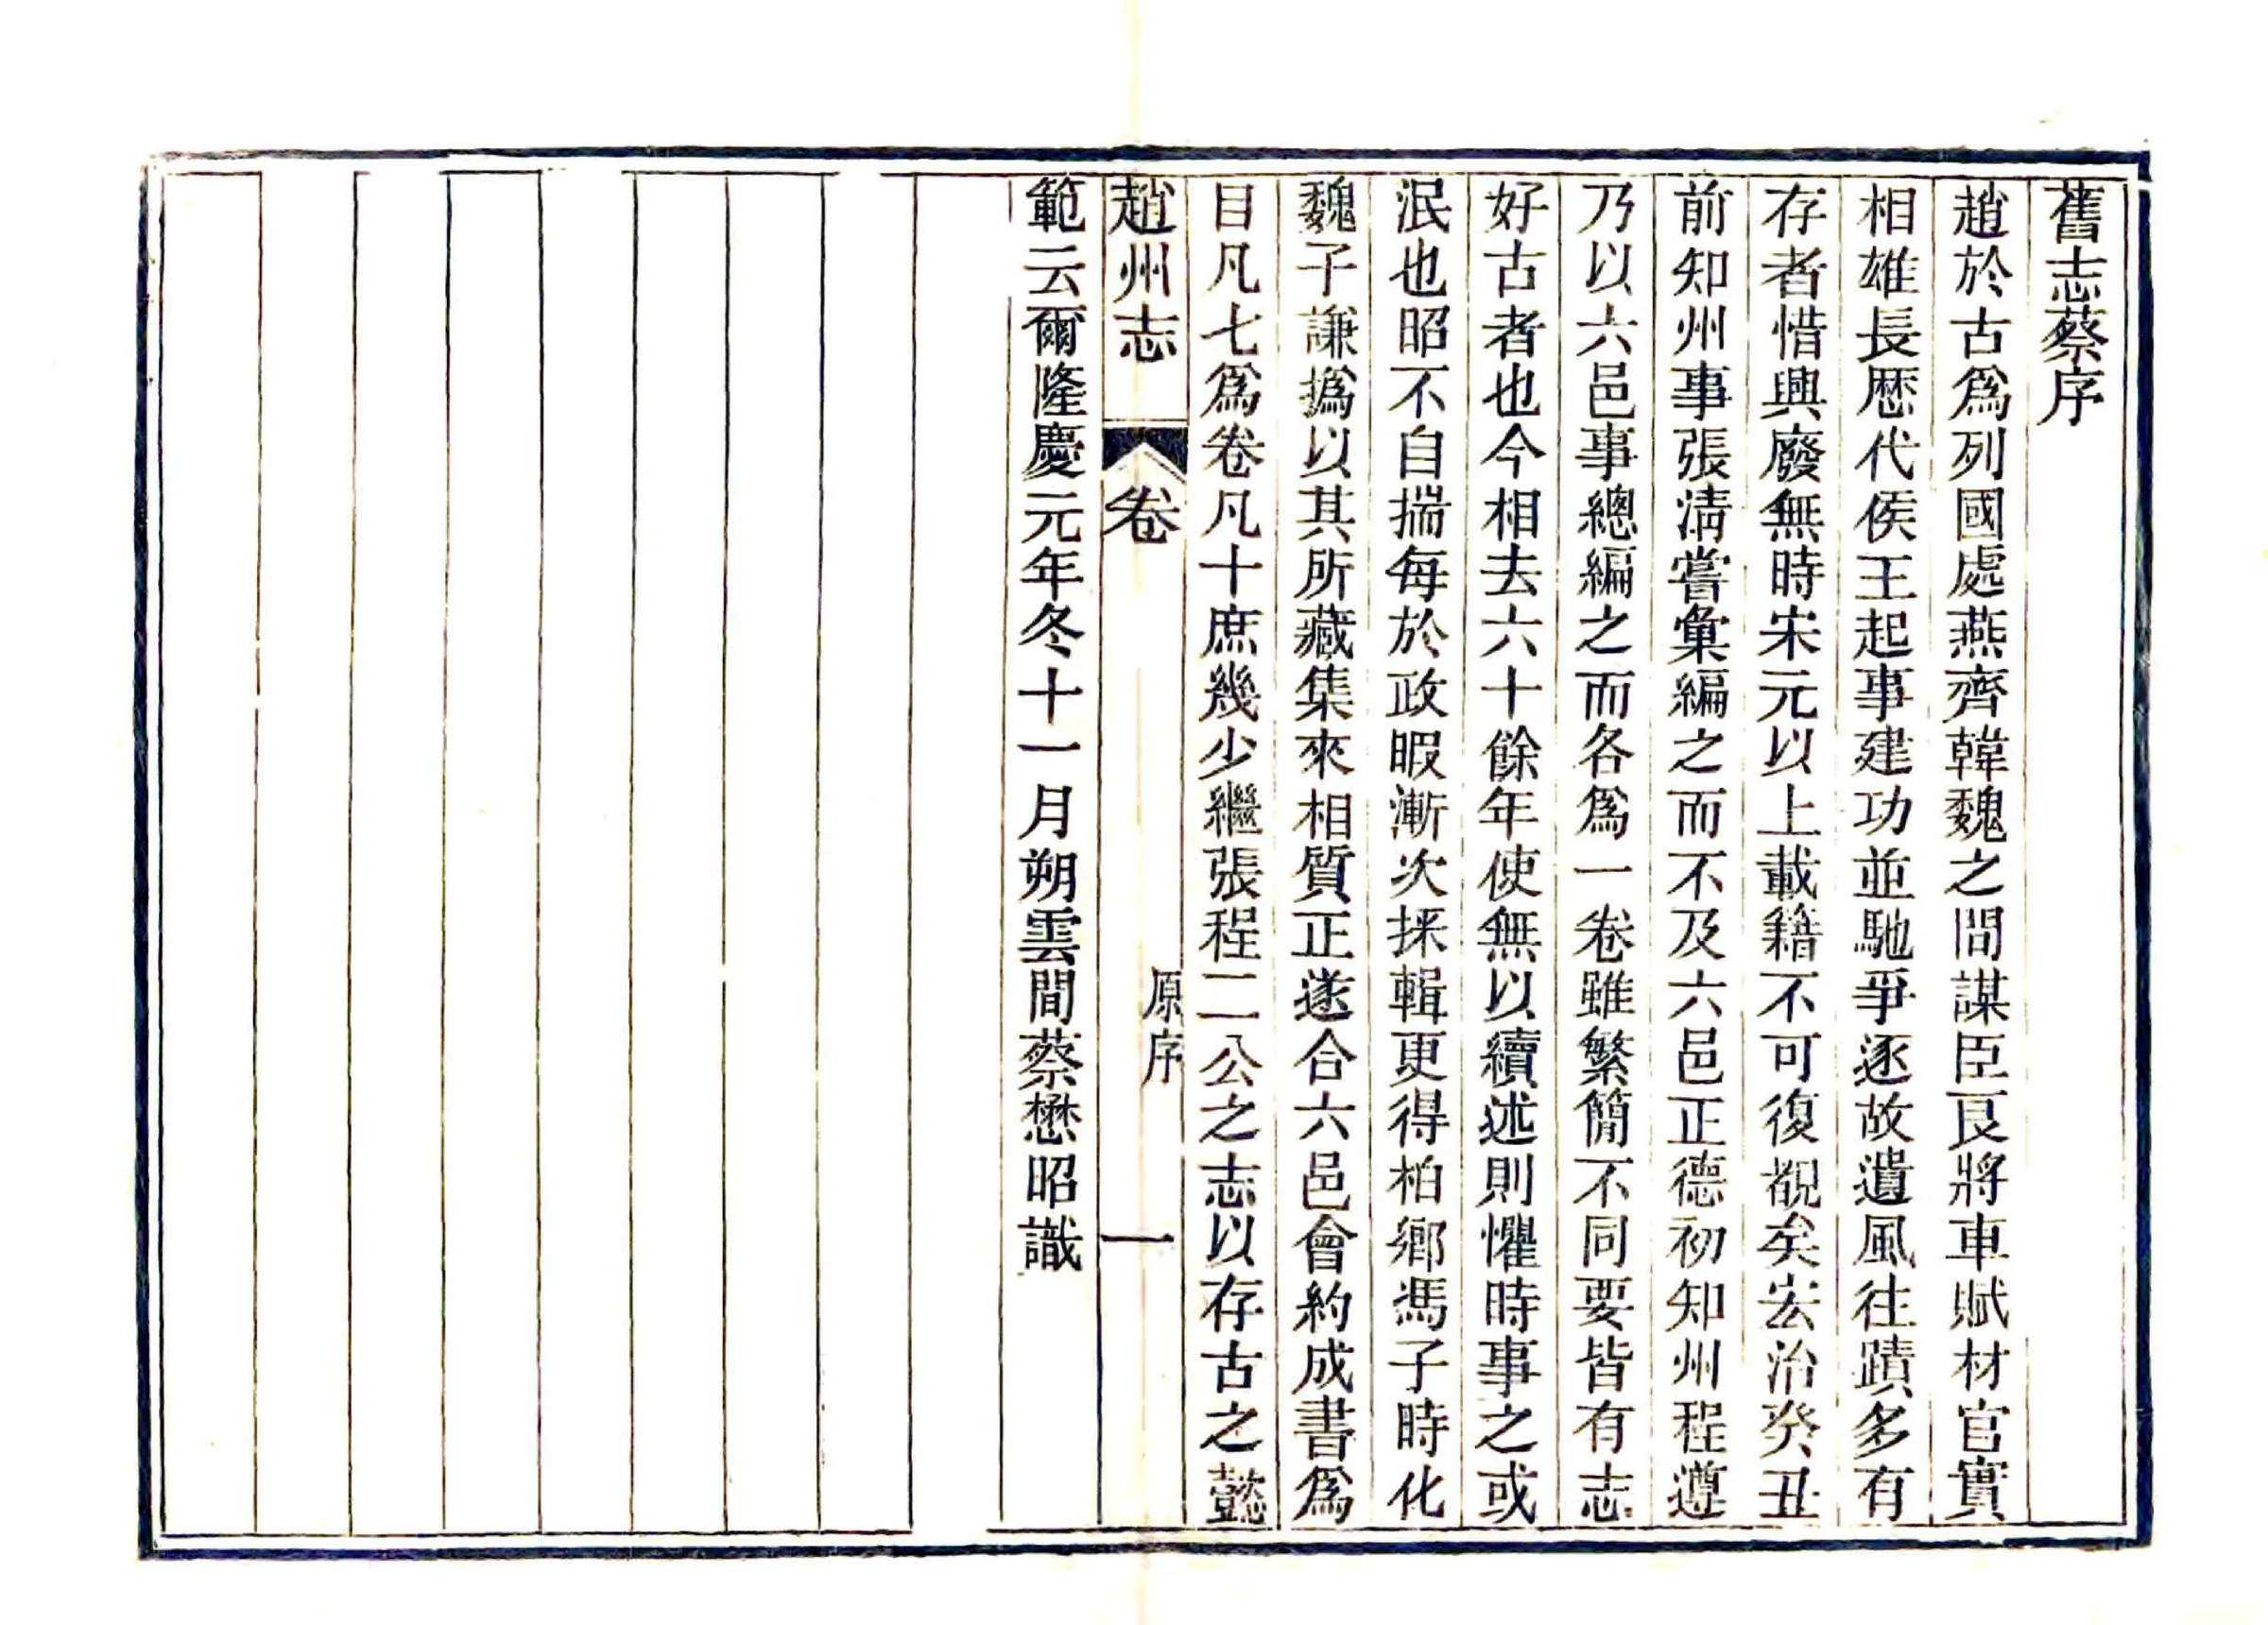 舊志蔡序
趙於古爲列國處燕齊韓魏之間謀臣良將車賦材官實
相雄長歷代侯王起事建功並馳爭逐故遺風往蹟多有
存者惜興廢無時宋元以上載籍不可復覩矣宏治癸丑
前知州事張淸嘗彙編之而不及六邑正德初知州程遵
乃以六邑事總編之而各爲一卷雖繁簡不同要皆有志
好古者也今相去六十餘年使無以續述則懼時事之或
泯也昭不自揣每於政暇漸次採輯更得柏鄉馮子時化
魏子謙撝以其所藏集來相質正遂合六邑會約成書爲
目凡七爲卷凡十庶幾少繼張程二公之志以存古之懿
趙州志 卷 原序 一
範云爾隆慶元年冬十一月朔雲間蔡懋昭識